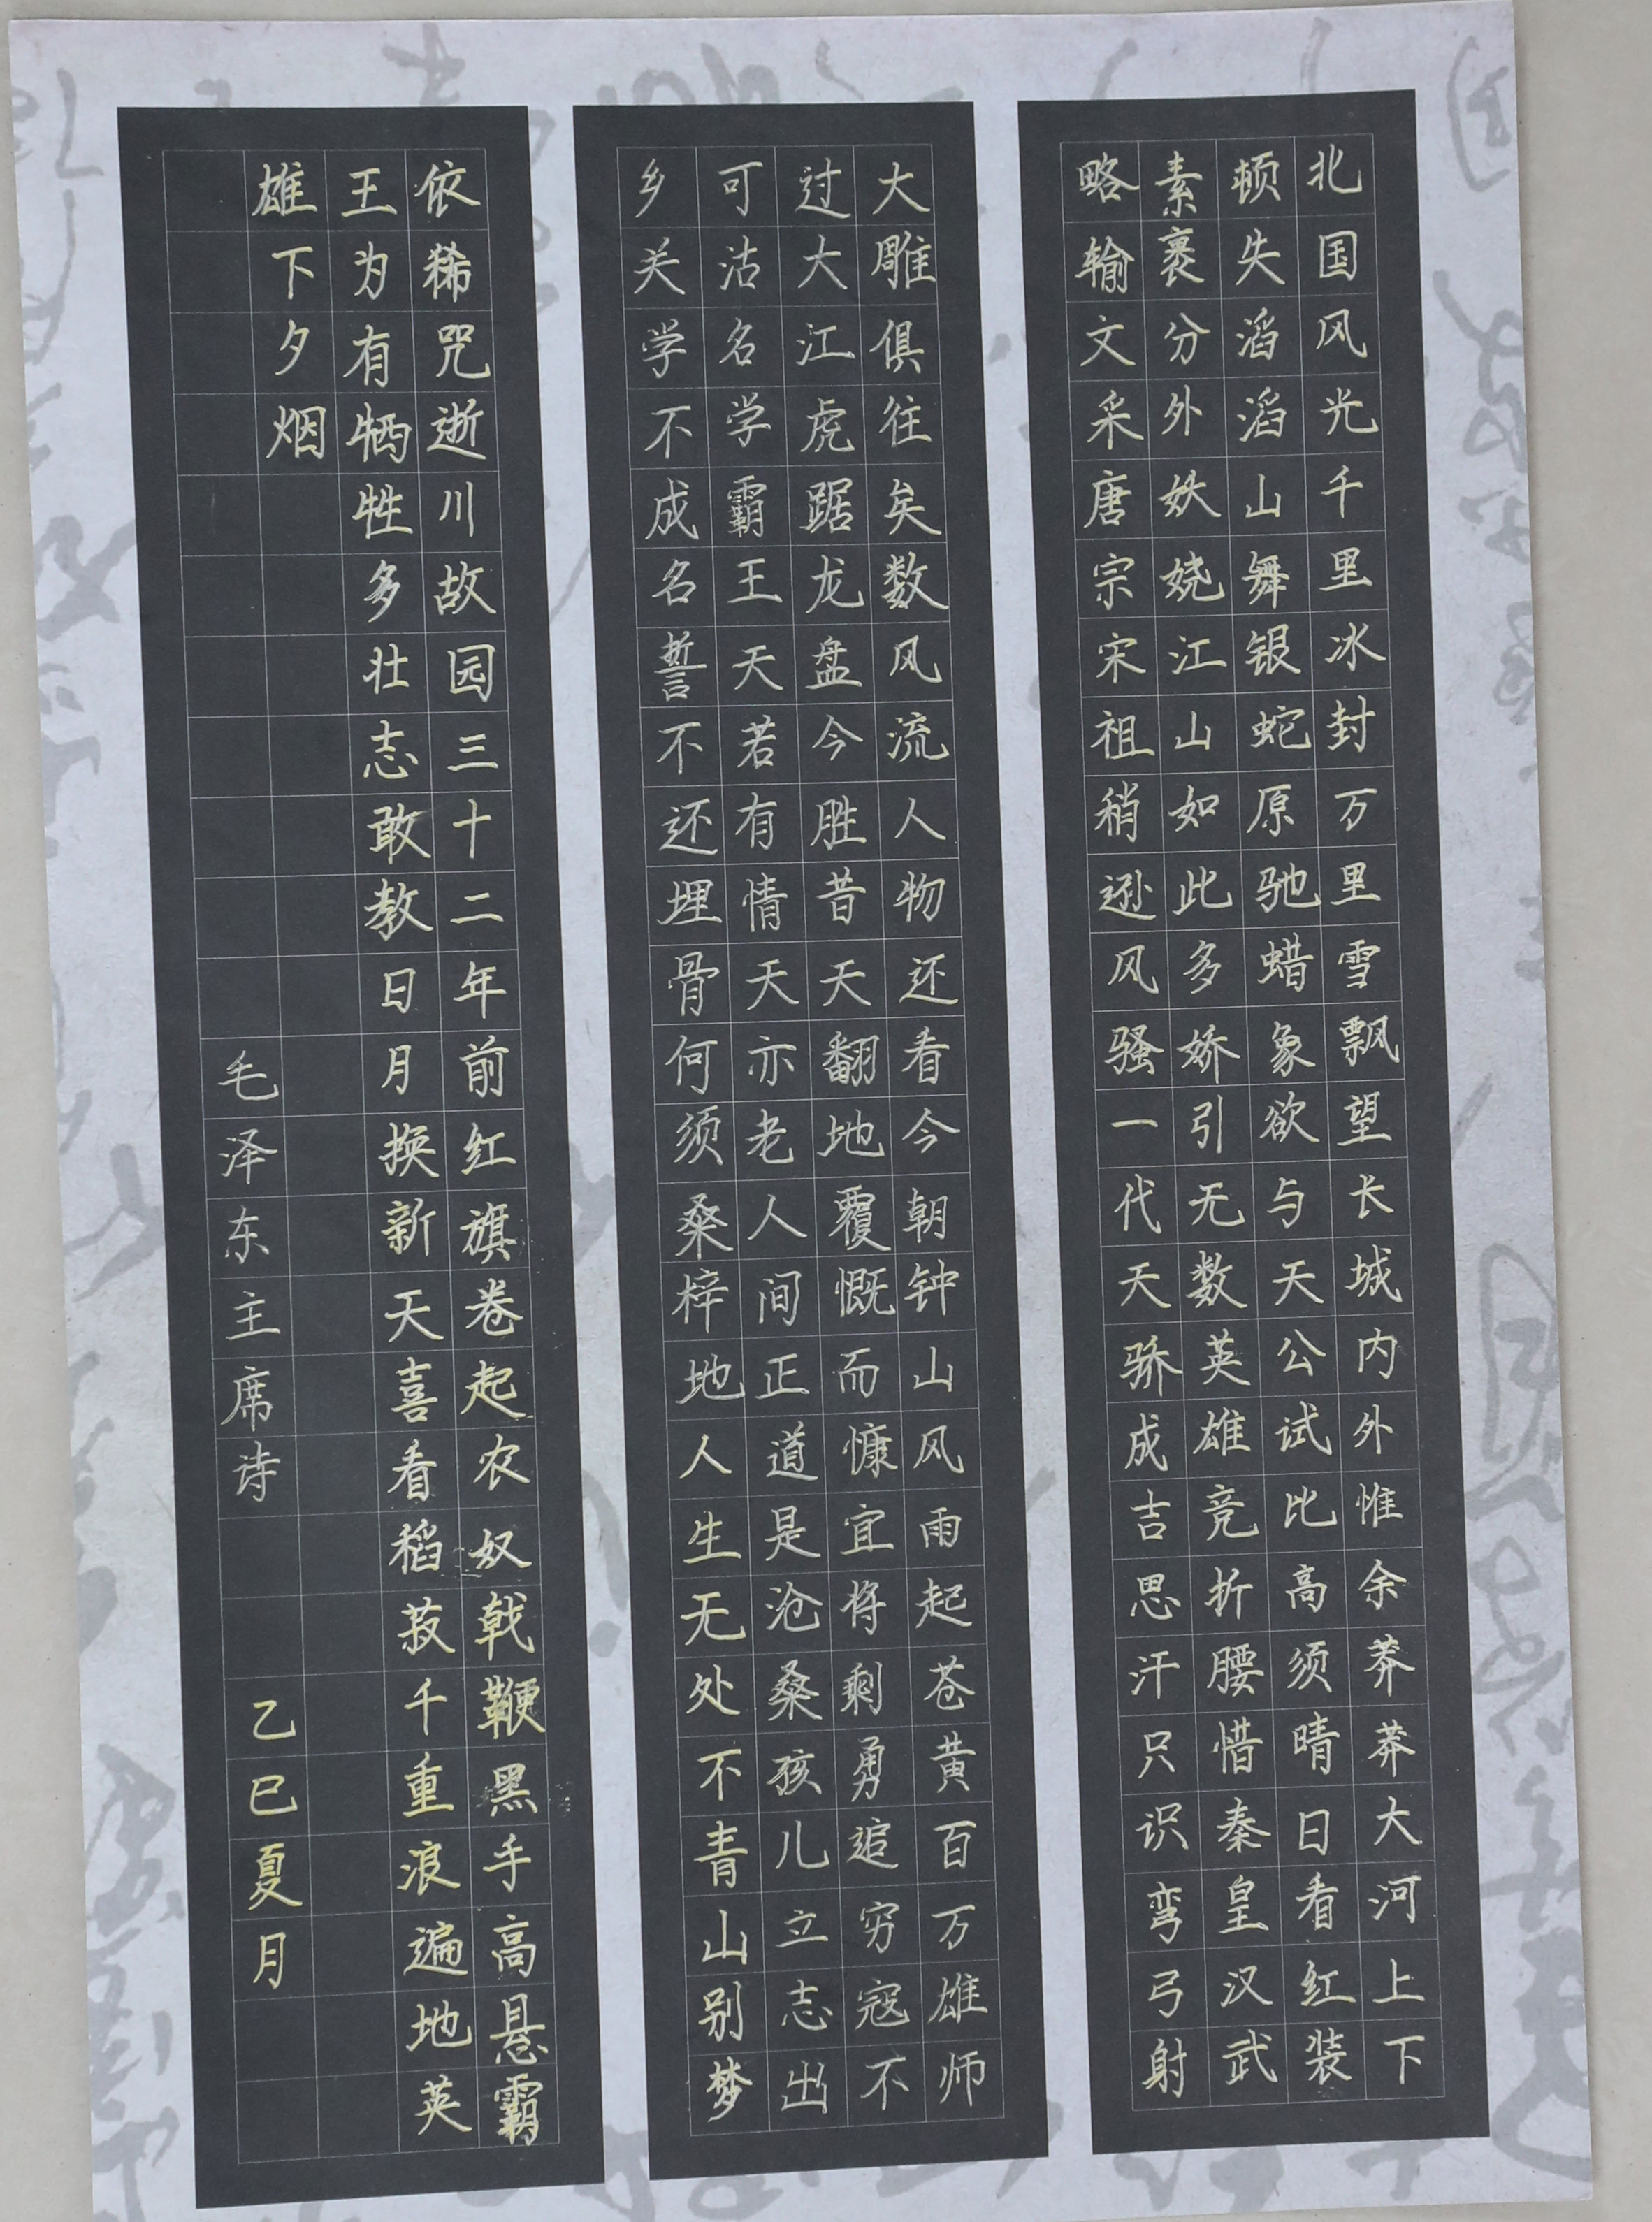 北国风光千里冰封万里雪飘望长城内外惟余莽莽大河上下
顿失滔滔山舞银蛇原驰蜡象欲与天公试比高须晴日看红装
素裹分外妖娆江山如此多娇引无数英雄竞折腰惜秦皇汉武
略输文采唐宗宋祖稍逊风骚一代天骄成吉思汗只识弯弓射
大雕俱往矣数风流人物还看今朝钟山风雨起苍黄百万雄师
过大江虎踞龙盘今胜昔天翻地覆慨而慷宜将剩勇追穷寇不
可沽名学霸王天若有情天亦老人间正道是沧桑孩儿立志出
乡关学不成名誓不还埋骨何须桑梓地人生无处不青山别梦
依稀咒逝川故园三十二年前红旗卷起农奴戟鞭黑手高悬霸
王为有牺牲多壮志敢教日月换新天喜看稻菽千重浪遍地英
雄下夕烟
毛泽东主席诗 乙巳夏月